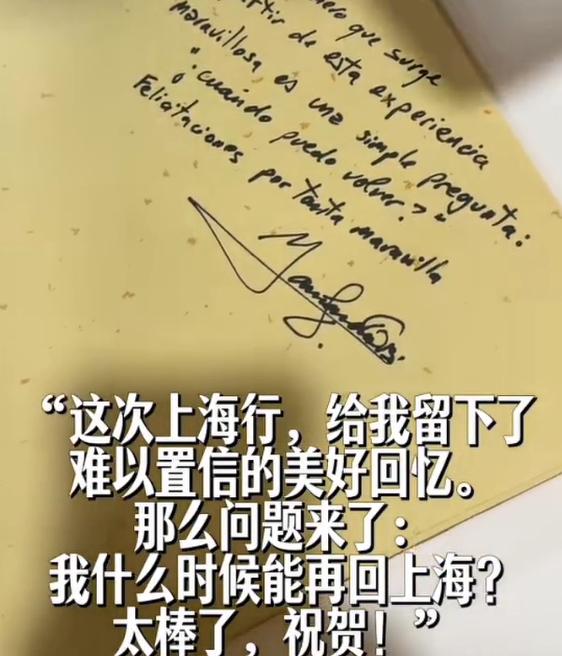 pero que surge
partir de esta experiencia
maravillosa es una simple pregunta:
"¿cuándo puedo volver?"
Felicitaciones por tanta maravilla
“这次上海行，给我留下了
难以置信的美好回忆。
那么问题来了：
我什么时候能再回上海？
太棒了，祝贺！”